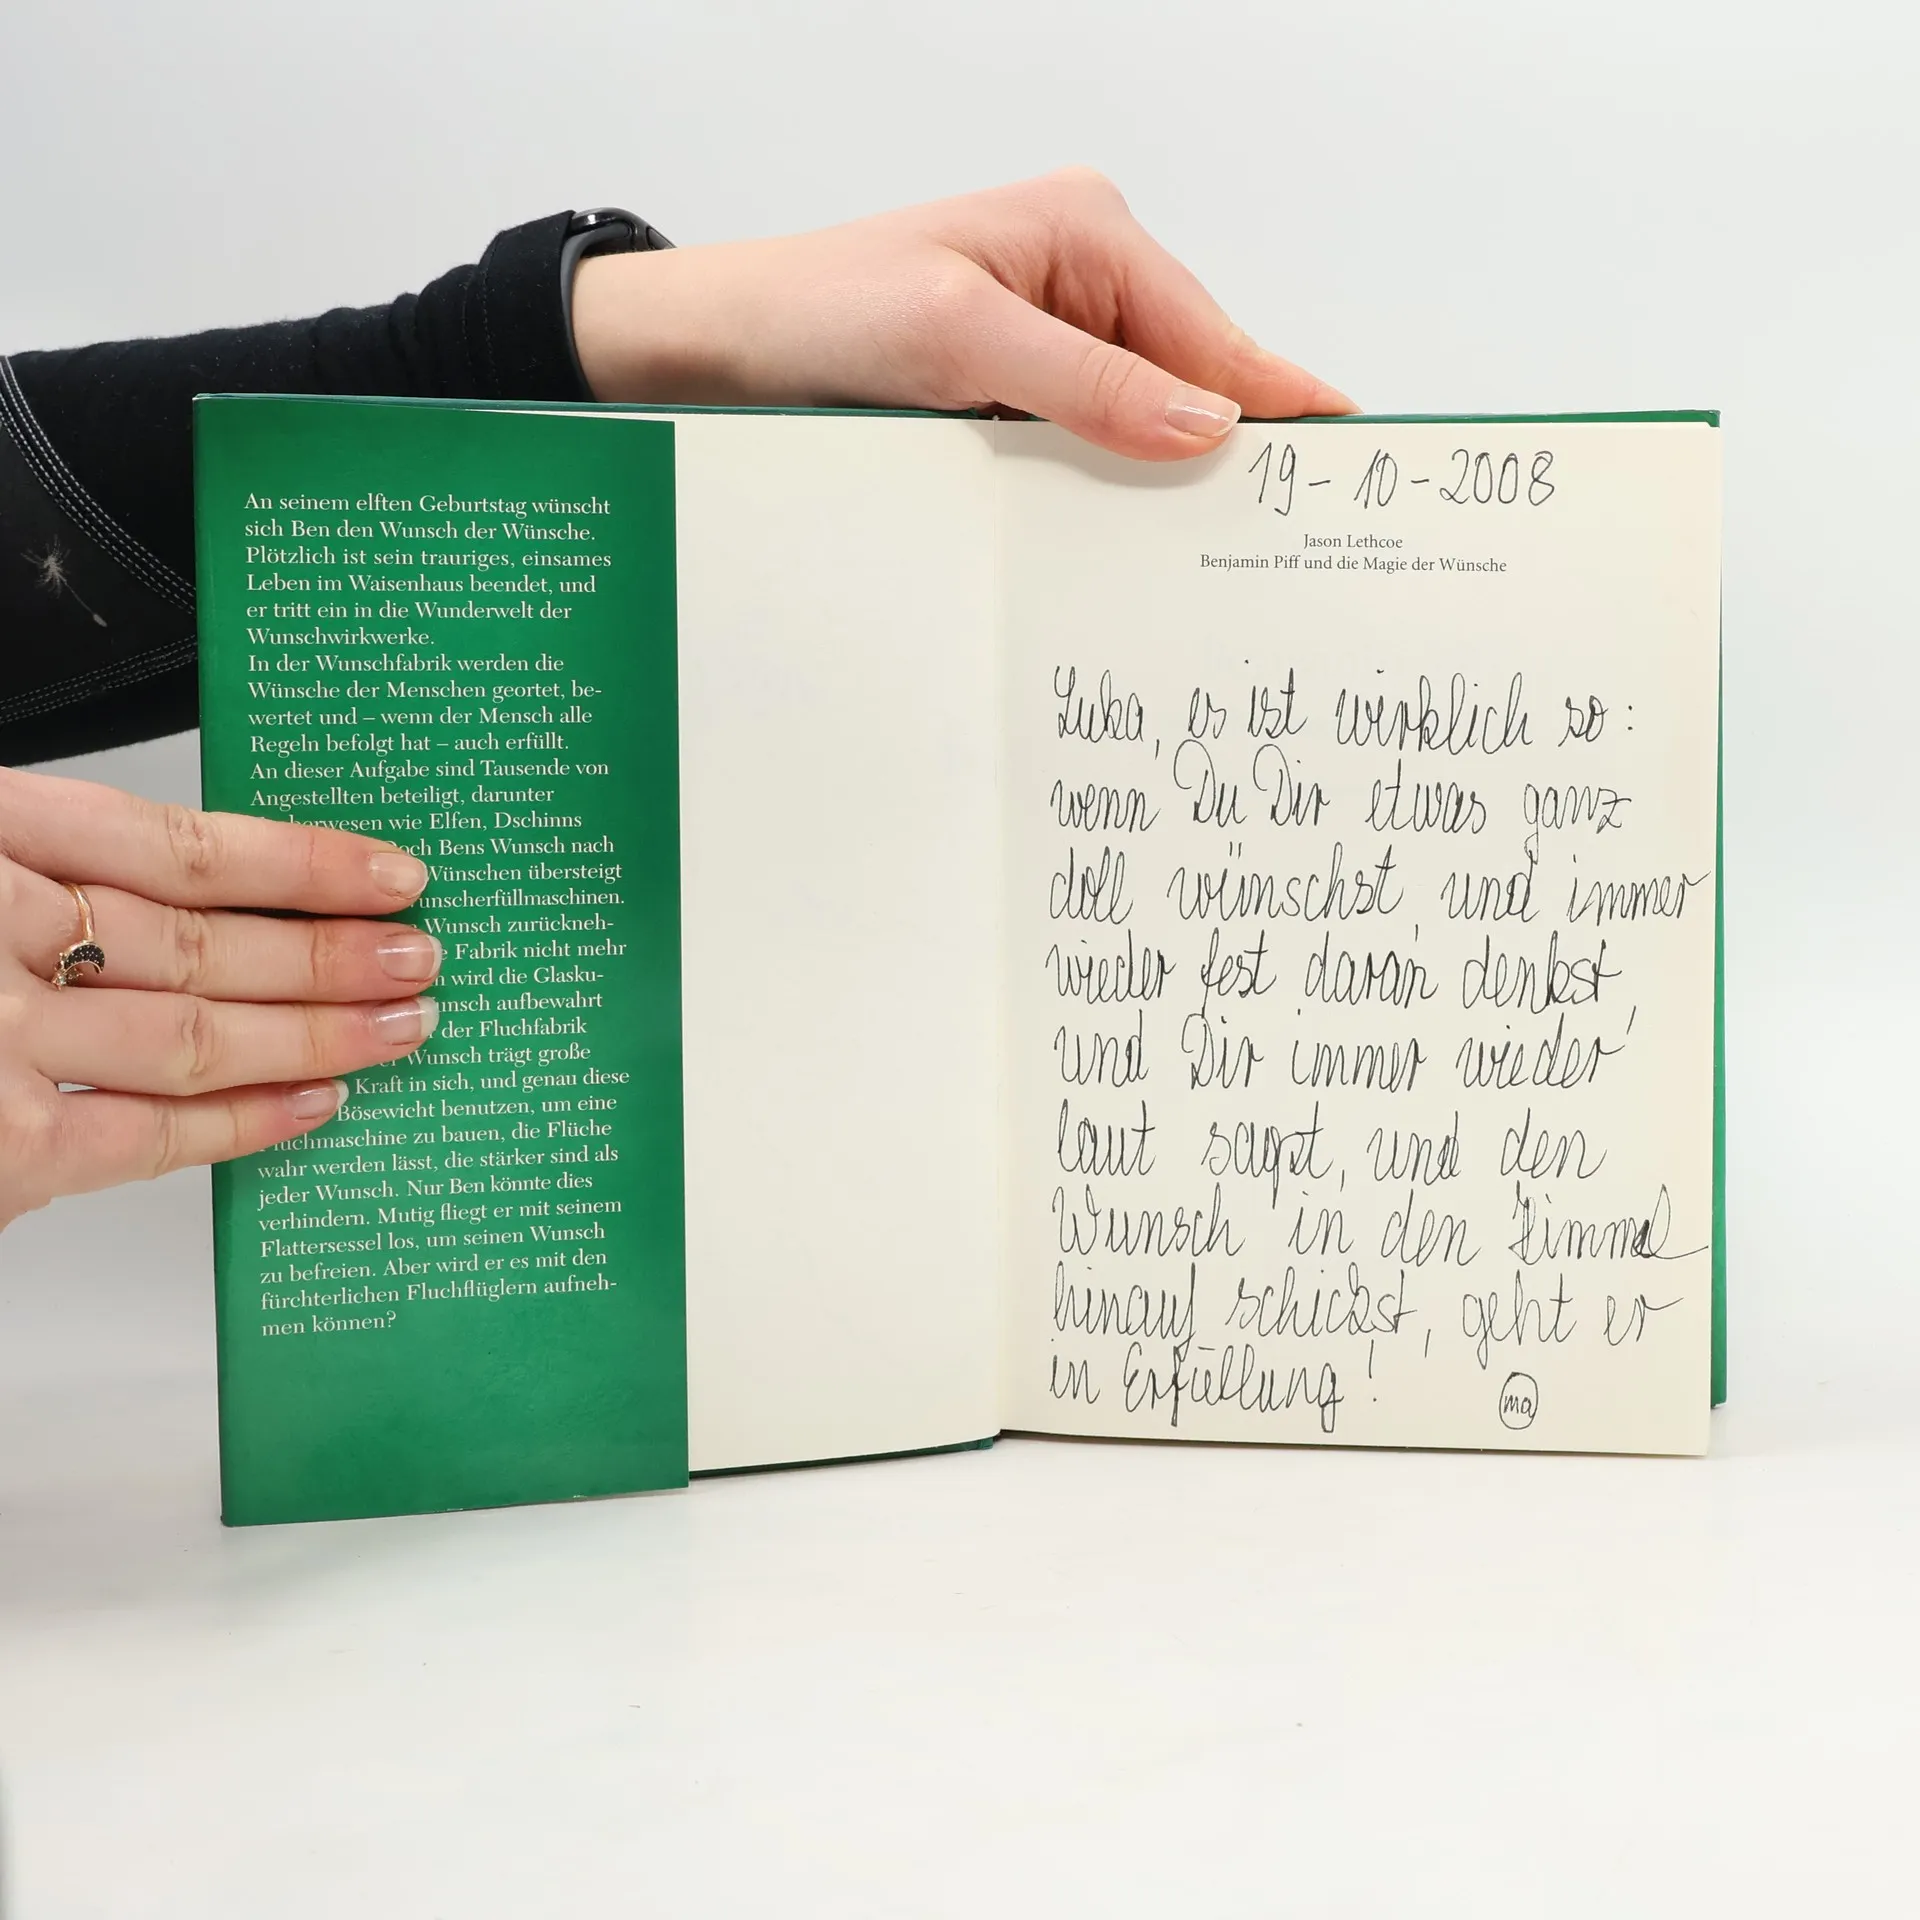 An seinem elften Geburtstag wünscht
sich Ben den Wunsch der Wünsche.
Plötzlich ist sein trauriges, einsames
Leben im Waisenhaus beendet, und
er tritt ein in die Wunderwelt der
Wunschwirkwerke.
In der Wunschfabrik werden die
Wünsche der Menschen geortet, be-
wertet und – wenn der Mensch alle
Regeln befolgt hat – auch erfüllt.
An dieser Aufgabe sind Tausende von
Angestellten beteiligt, darunter
wie Elfen, Dschinns
Doch Bens Wunsch nach
Wünschen übersteigt
Wunsch zurückneh-
Fabrik nicht mehr
wird die Glasku-
aufbewahrt
der Fluchfabrik
Wunsch trägt große
Kraft in sich, und genau diese
Bösewicht benutzen, um eine
zu bauen, die Flüche
wahr werden lässt, die stärker sind als
jeder Wunsch. Nur Ben könnte dies
verhindern. Mutig fliegt er mit seinem
Flattersessel los, um seinen Wunsch
zu befreien. Aber wird er es mit den
fürchterlichen Fluchflüglern aufneh-
men können?
19-10-2008
Jason Lethcoe
Benjamin Piff und die Magie der Wünsche
Luka, es ist wirklich so:
wenn Du Dir etwas ganz
doll wünschst, und immer
wieder fest daran denkst,
und Dir immer wieder
laut sagst, und den
Wunsch in den Himmel
hinauf schickst, geht er
in Erfüllung!
ma